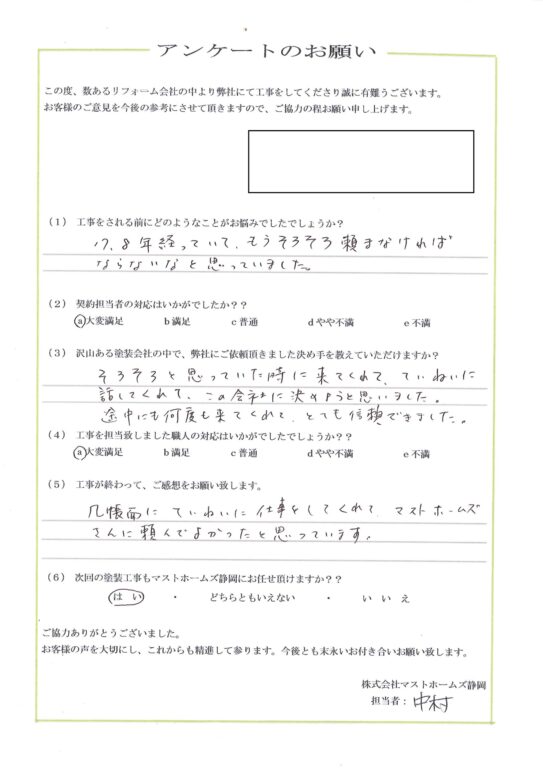 アンケートのお願い
この度、数あるリフォーム会社の中より弊社にて工事をしてくださり誠に有難うございます。
お客様のご意見を今後の参考にさせて頂きますので、ご協力の程お願い申し上げます。
（1） 工事をされる前にどのようなことがお悩みでしたでしょうか？
17,8年経っていて、もうそろそろ頼まなければ
ならないなと思っていました。
（2） 契約担当者の対応はいかがでしたか？？
a大変満足 b満足 c普通 dやや不満 e不満
（3） 沢山ある塗装会社の中で、弊社にご依頼頂きました決め手を教えていただけますか？
そろそろと思っていた時に来てくれて、ていねいに
話してくれて、この会社に決めようと思いました。
途中にも何度も来てくれて、とても信頼できました。
（4） 工事を担当致しました職人の対応はいかがでしたでしょうか？？
a大変満足 b満足 c普通 dやや不満 e不満
（5） 工事が終わって、ご感想をお願い致します。
几帳面にていねいに仕事をしてくれて、マストホームズ
さんに頼んでよかったと思っています。
（6） 次回の塗装工事もマストホームズ静岡にお任せ頂けますか？？
はい ・ どちらともいえない ・ いいえ
ご協力ありがとうございました。
お客様の声を大切にし、これからも精進して参ります。今後とも末永いお付き合いお願い致します。
株式会社マストホームズ静岡
担当者：中村